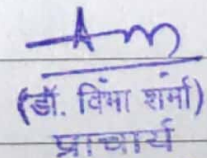 (डॉ. विभा शर्मा)
प्राचार्य